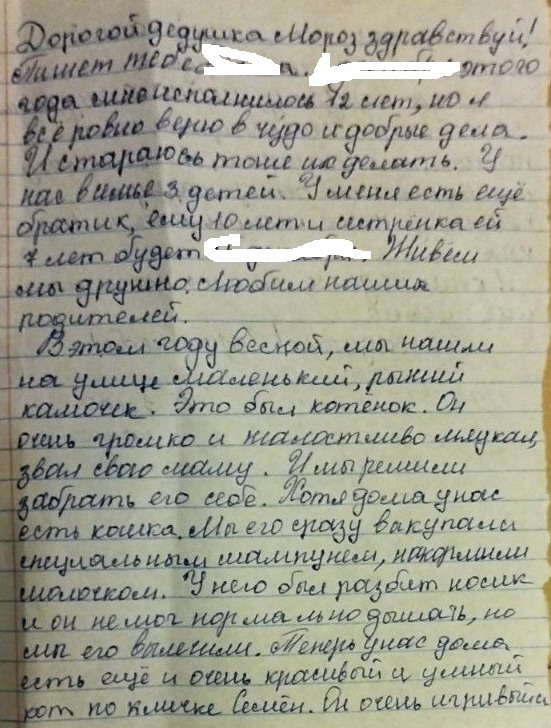 Дорогой дедушка Мороз здравствуй!
Пишет тебе этого
года мне исполнилось 12 лет, но я
всё ровно верю в чудо и добрые дела.
И стараюсь тоже их делать. У
нас в симье 3 детей. У меня есть ещё
братик, ему 10 лет и систрёнка ей
7 лет будет Живём
мы дружно. Любим наших
родителей.
В этом году весной, мы нашли
на улице маленький, рыжий
камочек. Это был котёнок. Он
очень громко и жалостливо мяукал,
звал свою маму. И мы решили
забрать его себе. Хотя дома у нас
есть кошка. Мы его сразу выкупали
специальным шампунем, накормили
молочком. У него был разбит носик
и он не мог нормально дышать, но
мы его вылечили. Теперь у нас дома
есть ещё и очень красивый и умный
кот по кличке Семён. Он очень игривый и